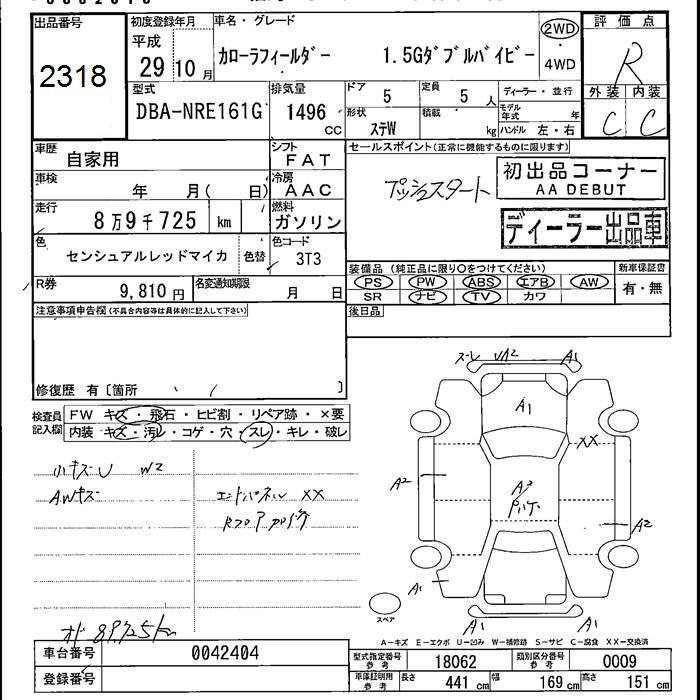 出品番号 2318
初度登録年月 平成 29年 10月
車名・グレード カローラフィールダー 1.5Gダブルバイビー
2WD・4WD
評価点 R
外装 内装
C C
型式 DBA-NRE161G
排気量 1496 cc
ドア 5
定員 5 人
ディーラー・並行
形状 ステW
積載 kg
モデル年式 年
ハンドル 左・右
車歴 自家用
シフト FAT
車検 年 月( 日)
冷房 AAC
走行 8万9千725 km
燃料 ガソリン
色 センシュアルレッドマイカ
色替
色コード 3T3
R券 9,810 円
名変通知期限 月 日
セールスポイント(正常に機能するものに限ります)
プッシュスタート
初出品コーナー
AA DEBUT
ディーラー出品車
装備品(純正品に限り○をつけてください)
PS PW ABS エアB AW
SR ナビ TV カワ
新車保証書
有・無
後日品
注意事項申告欄(不具合内容等は具体的に記入して下さい)
修復歴 有〔箇所 〕
検査員記入欄
FW キズ・飛石・ヒビ割・リペア跡・×要
内装 キズ・汚レ・コゲ・穴・スレ・キレ・破レ
小キズU W2
AWキズ
エンドパネル XX
Rフロア加修
オド 89725km
スレ UA2 A1
A1
XX
A2
A3
A2
A1
A1 A1
スペア
A-キズ E-エクボ U-凹み W-補修跡 S-サビ C-腐食 XX-交換済
車台番号 0042404
登録番号
型式指定番号 参考 18062
類別区分番号 参考 0009
車庫証明用 参考 長さ 441 cm 幅 169 cm 高さ 151 cm